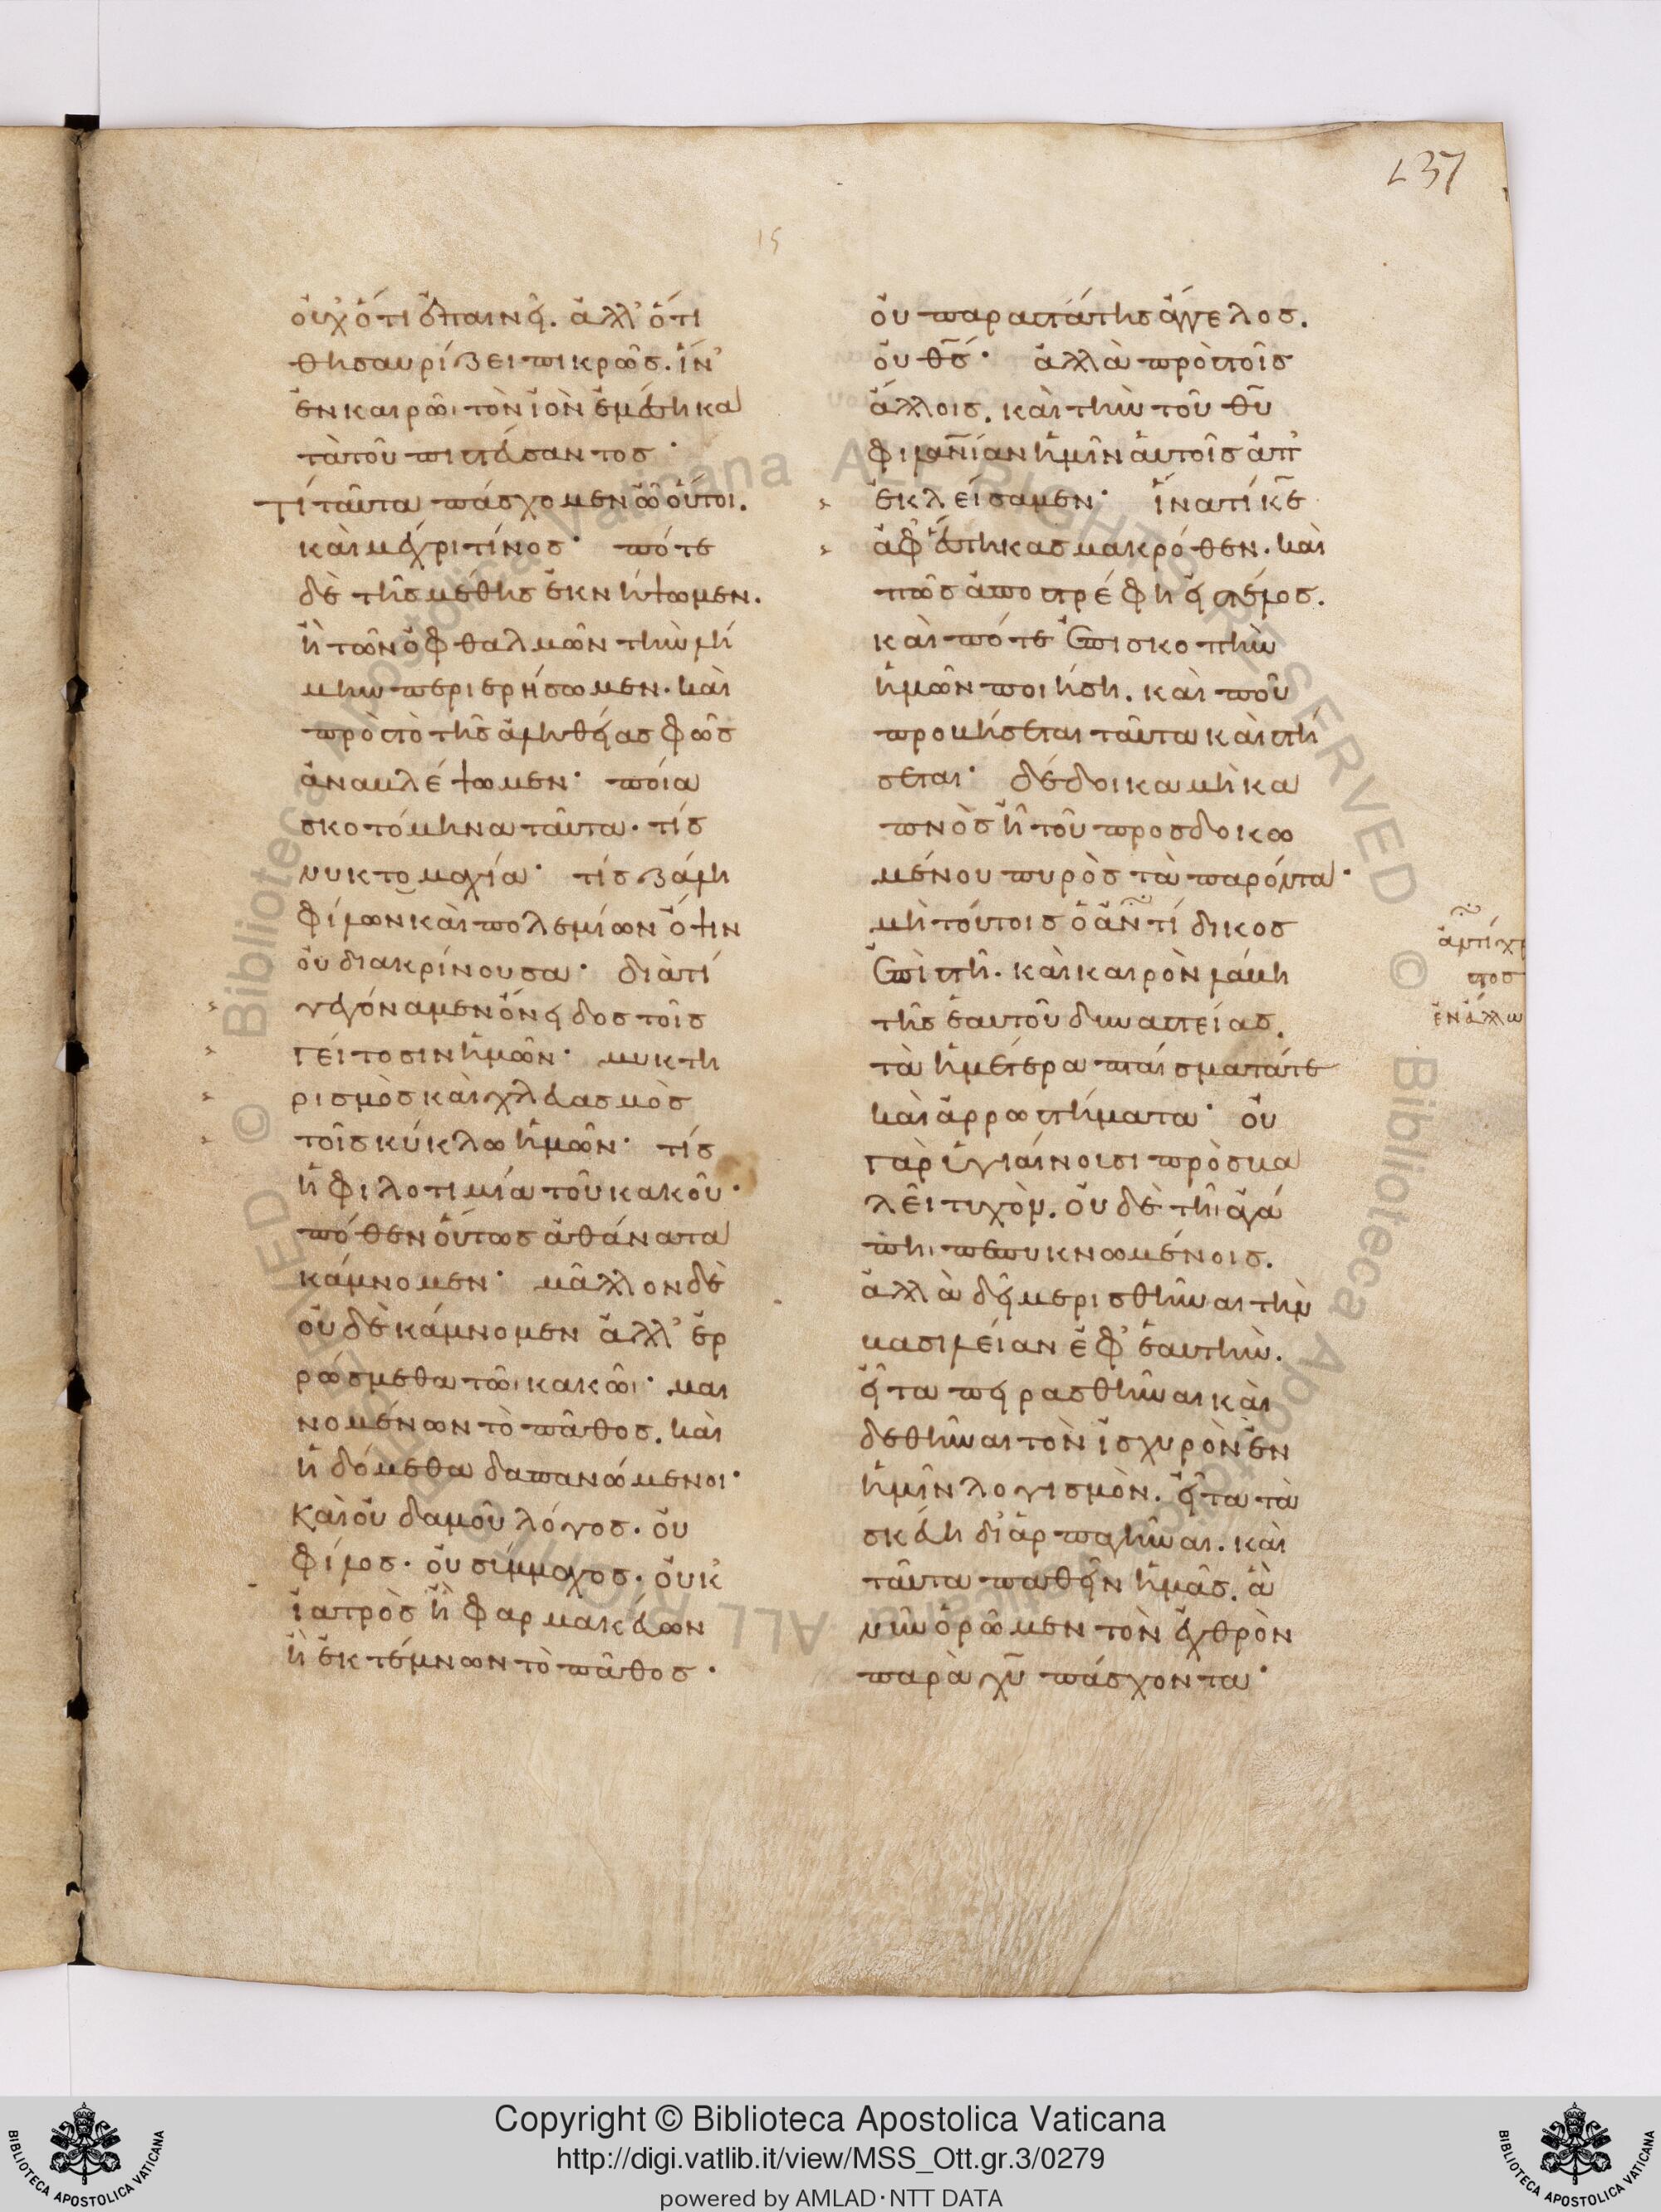 137
15
οὐχ ὅτι ἐπαινεῖ. ἀλλ' ὅτι
θησαυρίζει πικρῶς. ἵν'
ἐν καιρῶι τὸν ἰὸν ἐμέσηι κα
τὰ τοῦ πιστεύσαντος·
Τί ταῦτα πάσχομεν ὦ οὗτοι.
καὶ μέχρι τίνος· πότε
δὲ τῆς μέθης ἐκνήψωμεν.
ἢ τῶν ὀφθαλμῶν τὴν λή
μην περιερήσωμεν. καὶ
πρὸς τὸ τῆς ἀληθείας φῶς
ἀναβλέψωμεν· ποία
σκοτόμηνα ταῦτα. τίς
νυκτομαχία· τίς ζάλη
φίλων καὶ πολεμίων ὄψιν
οὐ διακρίνουσα· διατί
γεγόναμεν ὄνειδος τοῖς
γείτοσιν ἡμῶν· μυκτη
ρισμὸς καὶ χλευασμὸς
τοῖς κύκλω ἡμῶν· τίς
ἡ φιλοτιμία τοῦ κακοῦ·
πόθεν οὕτως ἀθάνατα
κάμνομεν· μᾶλλον δὲ
οὐδὲ κάμνομεν ἀλλ' ἐρ
ρώσμεθα τῶι κακῶι· μαι
νομένων τὸ πάθος. καὶ
ἡδόμεθα δαπανώμενοι·
Καὶ οὐδαμοῦ λόγος. οὐ
φίλος. οὐ σύμμαχος. οὐκ
ἰατρὸς ἢ φαρμακεύων
ἢ ἐκτέμνων τὸ πάθος·
οὐ παραστάτης ἄγγελος.
οὐ θς· ἀλλὰ πρὸς τοῖς
ἄλλοις. καὶ τὴν τοῦ θυ
φιλανίαν ἡμῖν αὐτοῖς ἀπ
εκλείσαμεν· ἵνα τί κε
ἀφέστηκας μακρόθεν. καὶ
πῶς ἀποστρέφη εἰς τέλος.
καὶ πότε ἐπισκοπὴν
ἡμῶν ποιήση. καὶ ποῦ
προβήσεται ταῦτα καὶ στή
σεται· δέδοικα μὴ κα
πνὸς ἦ τοῦ προσδοκω
μένου πυρὸς τὰ παρόντα·
μὴ τούτοις ὁ ἀντίδικος
ἐπιστῆ. καὶ καιρὸν λάβη
τῆς ἑαυτοῦ δυναστείας.
τὰ ἡμέτερα πταίσματά τε
καὶ ἀρρωστήματα· οὐ
γὰρ ὑγιαίνουσι προσβα
λεῖ τυχὸν. οὐδὲ τῆι ἀγά
πηι πεπυκνωμένοις.
ἀλλὰ δεῖ μερισθῆναι τὴν
βασιλείαν ἐφ' ἑαυτὴν.
εἶτα πειρασθῆναι καὶ
δεθῆναι τὸν ἰσχυρὸν ἐν
ἡμῖν λογισμὸν. εἶτα τὰ
σκεύη διαρπαγῆναι. καὶ
ταῦτα παθεῖν ἡμᾶς. ἃ
νῦν ὁρῶμεν τὸν ἐχθρὸν
παρὰ χυ πάσχοντα·
ἀντίχρι
στος
ἐν ἄλλω
Copyright © Biblioteca Apostolica Vaticana
http://digi.vatlib.it/view/MSS_Ott.gr.3/0279
powered by AMLAD·NTT DATA